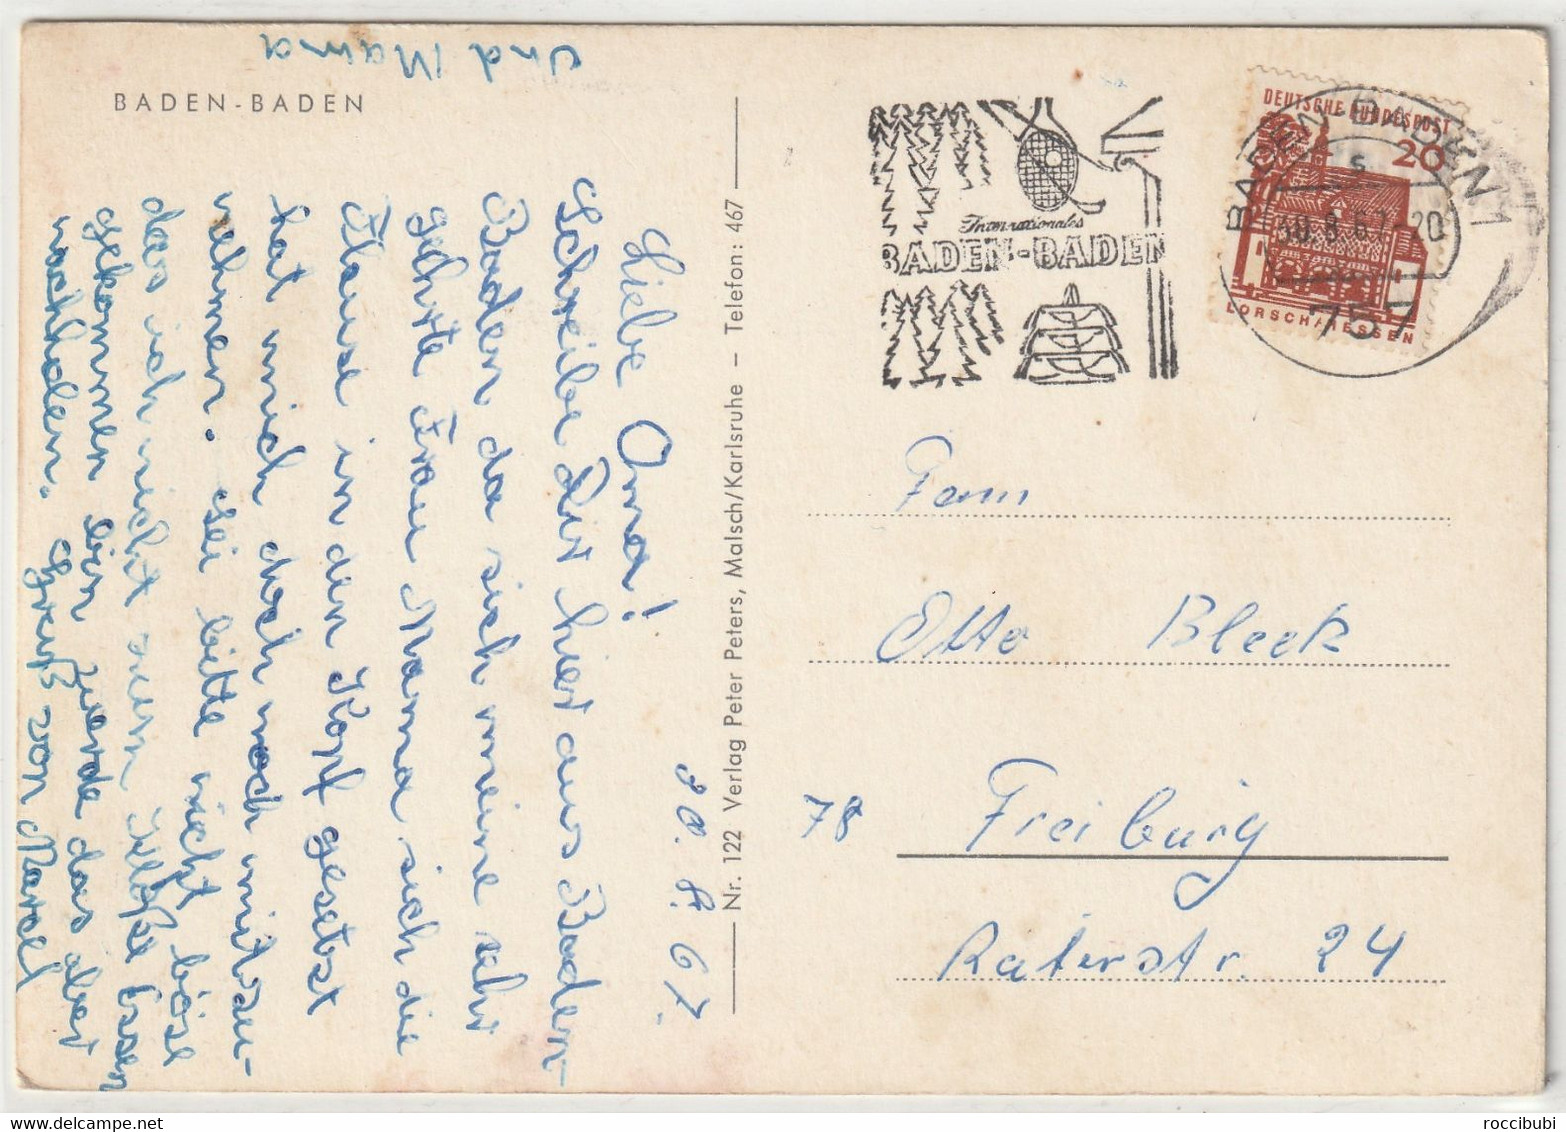 BADEN-BADEN
30.8.67.
Liebe Oma!
Schreibe Dir hier aus Baden-
Baden da sich meine sehr
geehrte Frau Mama sich die
Flause in den Kopf gesetzt
hat mich doch noch mitzu-
nehmen. Sei bitte nicht böse
das ich nicht zum Klöße Essen
gekommen bin werde das aber
nachholen. Gruß von Marcel
und Mama
Nr. 122 Verlag Peter Peters, Malsch/Karlsruhe – Telefon: 467
Internationales
BADEN-BADEN
DEUTSCHE BUNDESPOST
20
LORSCH/HESSEN
BADEN-BADEN 1
s
30.8.67-20
757
Fam
Otto Bleek
78 Freiburg
Raterstr. 24
roccibubi